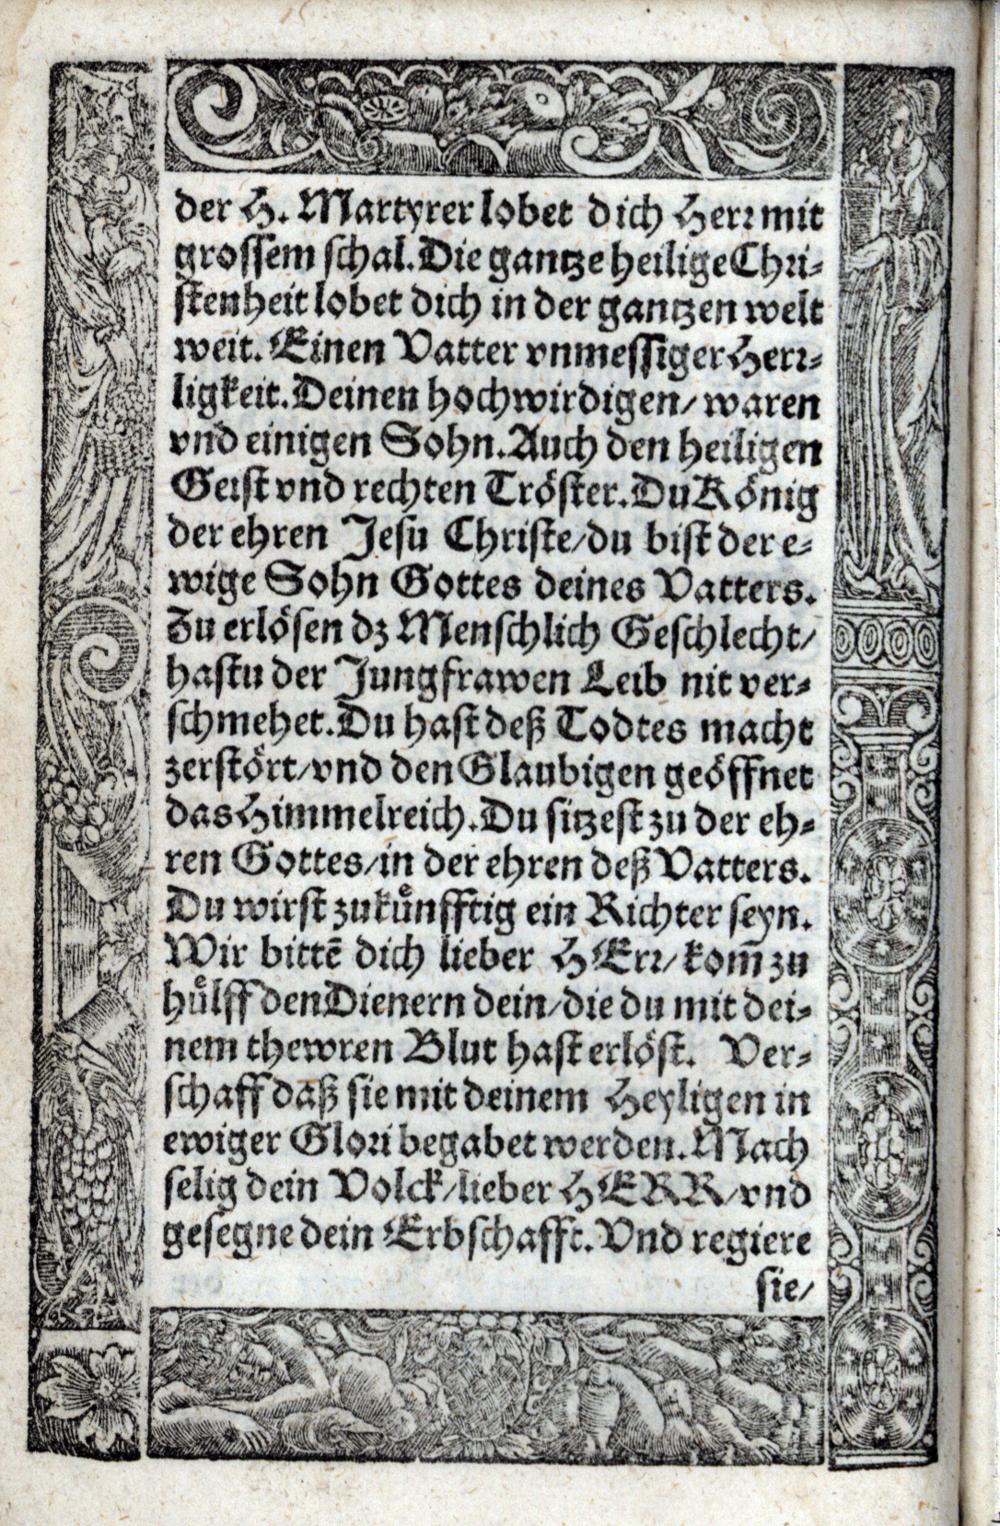 der H. Martyrer lobet dich Herr mit
grossem schal. Die gantze heilige Chri-
stenheit lobet dich in der gantzen welt
weit. Einen Vatter vnmessiger Herr-
ligkeit. Deinen hochwirdigen/ waren
vnd einigen Sohn. Auch den heiligen
Geist vnd rechten Tröster. Du König
der ehren Jesu Christe/ du bist der e-
wige Sohn Gottes deines Vatters.
Zu erlösen dz Menschlich Geschlecht/
hastu der Jungfrawen Leib nit ver-
schmehet. Du hast deß Todtes macht
zerstört/ vnd den Glaubigen geöffnet
das Himmelreich. Du sitzest zu der eh-
ren Gottes/ in der ehren deß Vatters.
Du wirst zukünfftig ein Richter seyn.
Wir bittē dich lieber HErr/ kom̄ zu
hülff den Dienern dein/ die du mit dei-
nem thewren Blut hast erlöst. Ver-
schaff daß sie mit deinem Heyligen in
ewiger Glori begabet werden. Mach
selig dein Volck/ lieber HERR/ vnd
gesegne dein Erbschafft. Vnd regiere
sie/